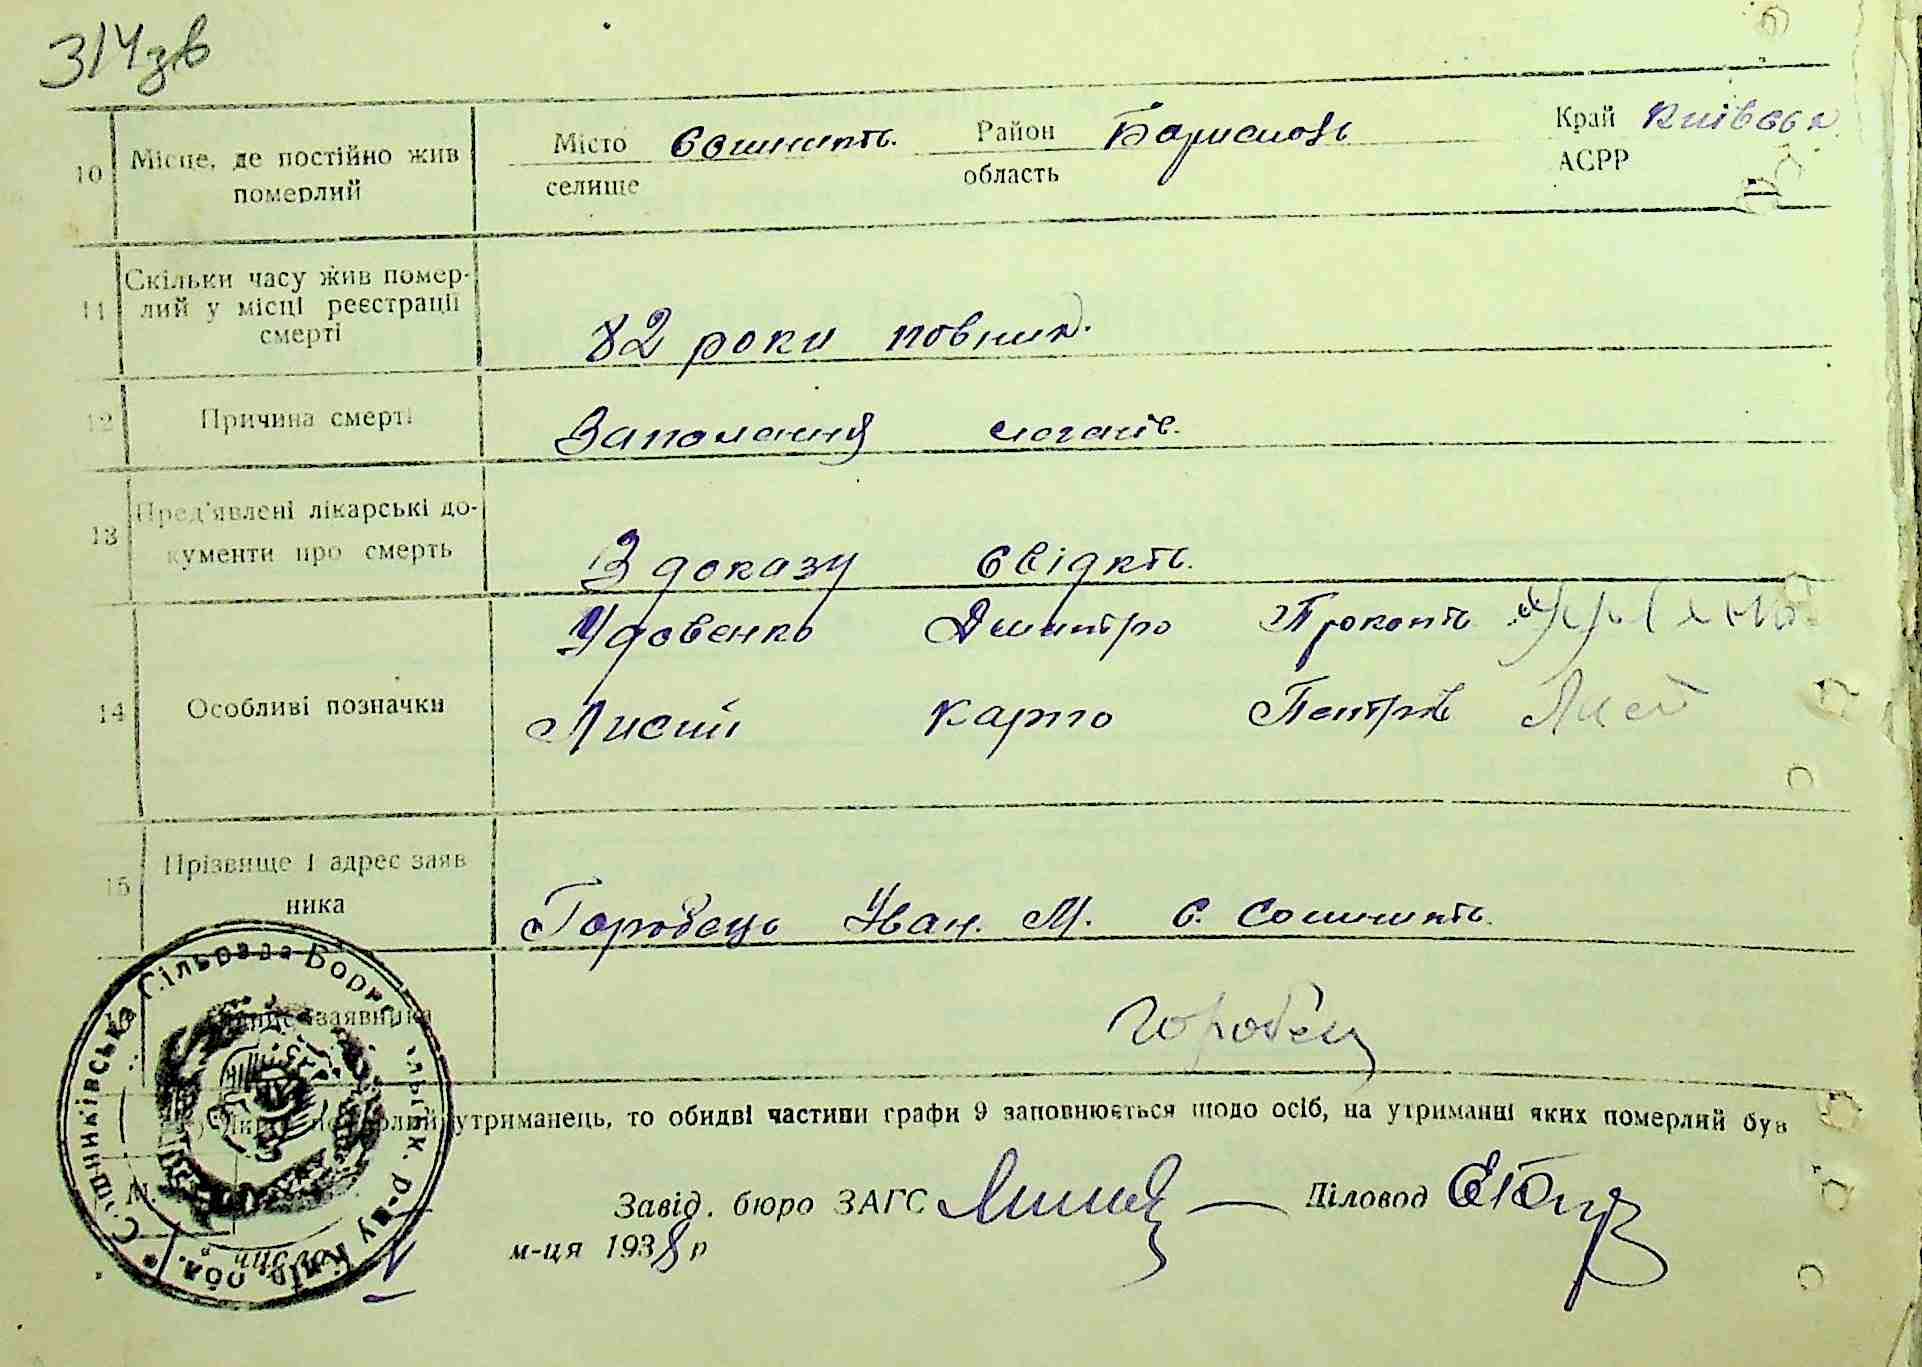 314зв
10 Місце, де постійно жив померлий
Місто селище Сошників. Район область Борисповь Край АСРР Київськ
11 Скільки часу жив помер-
лий у місці реєстрації
смерті
82 роки повних.
12 Причина смерті
Запалення легенів.
13 Пред'явлені лікарські до-
кументи про смерть
З доказу свідків.
14 Особливі позначки
Удовенко Дмитро Прокоп.
Лисий Карпо Петров Лисий
15 Прізвище і адрес заяв
ника
Горобець Іван. М. с. Сошників.
16 заявника
Горобец
померлий утриманець, то обидві частини графи 9 заповнюється щодо осіб, на утриманні яких померлий був
Завід. бюро ЗАГС Діловод
м-ця 1938 р
Сошниківська Сільрада Бориспільськ. р-ну Київ. обл.